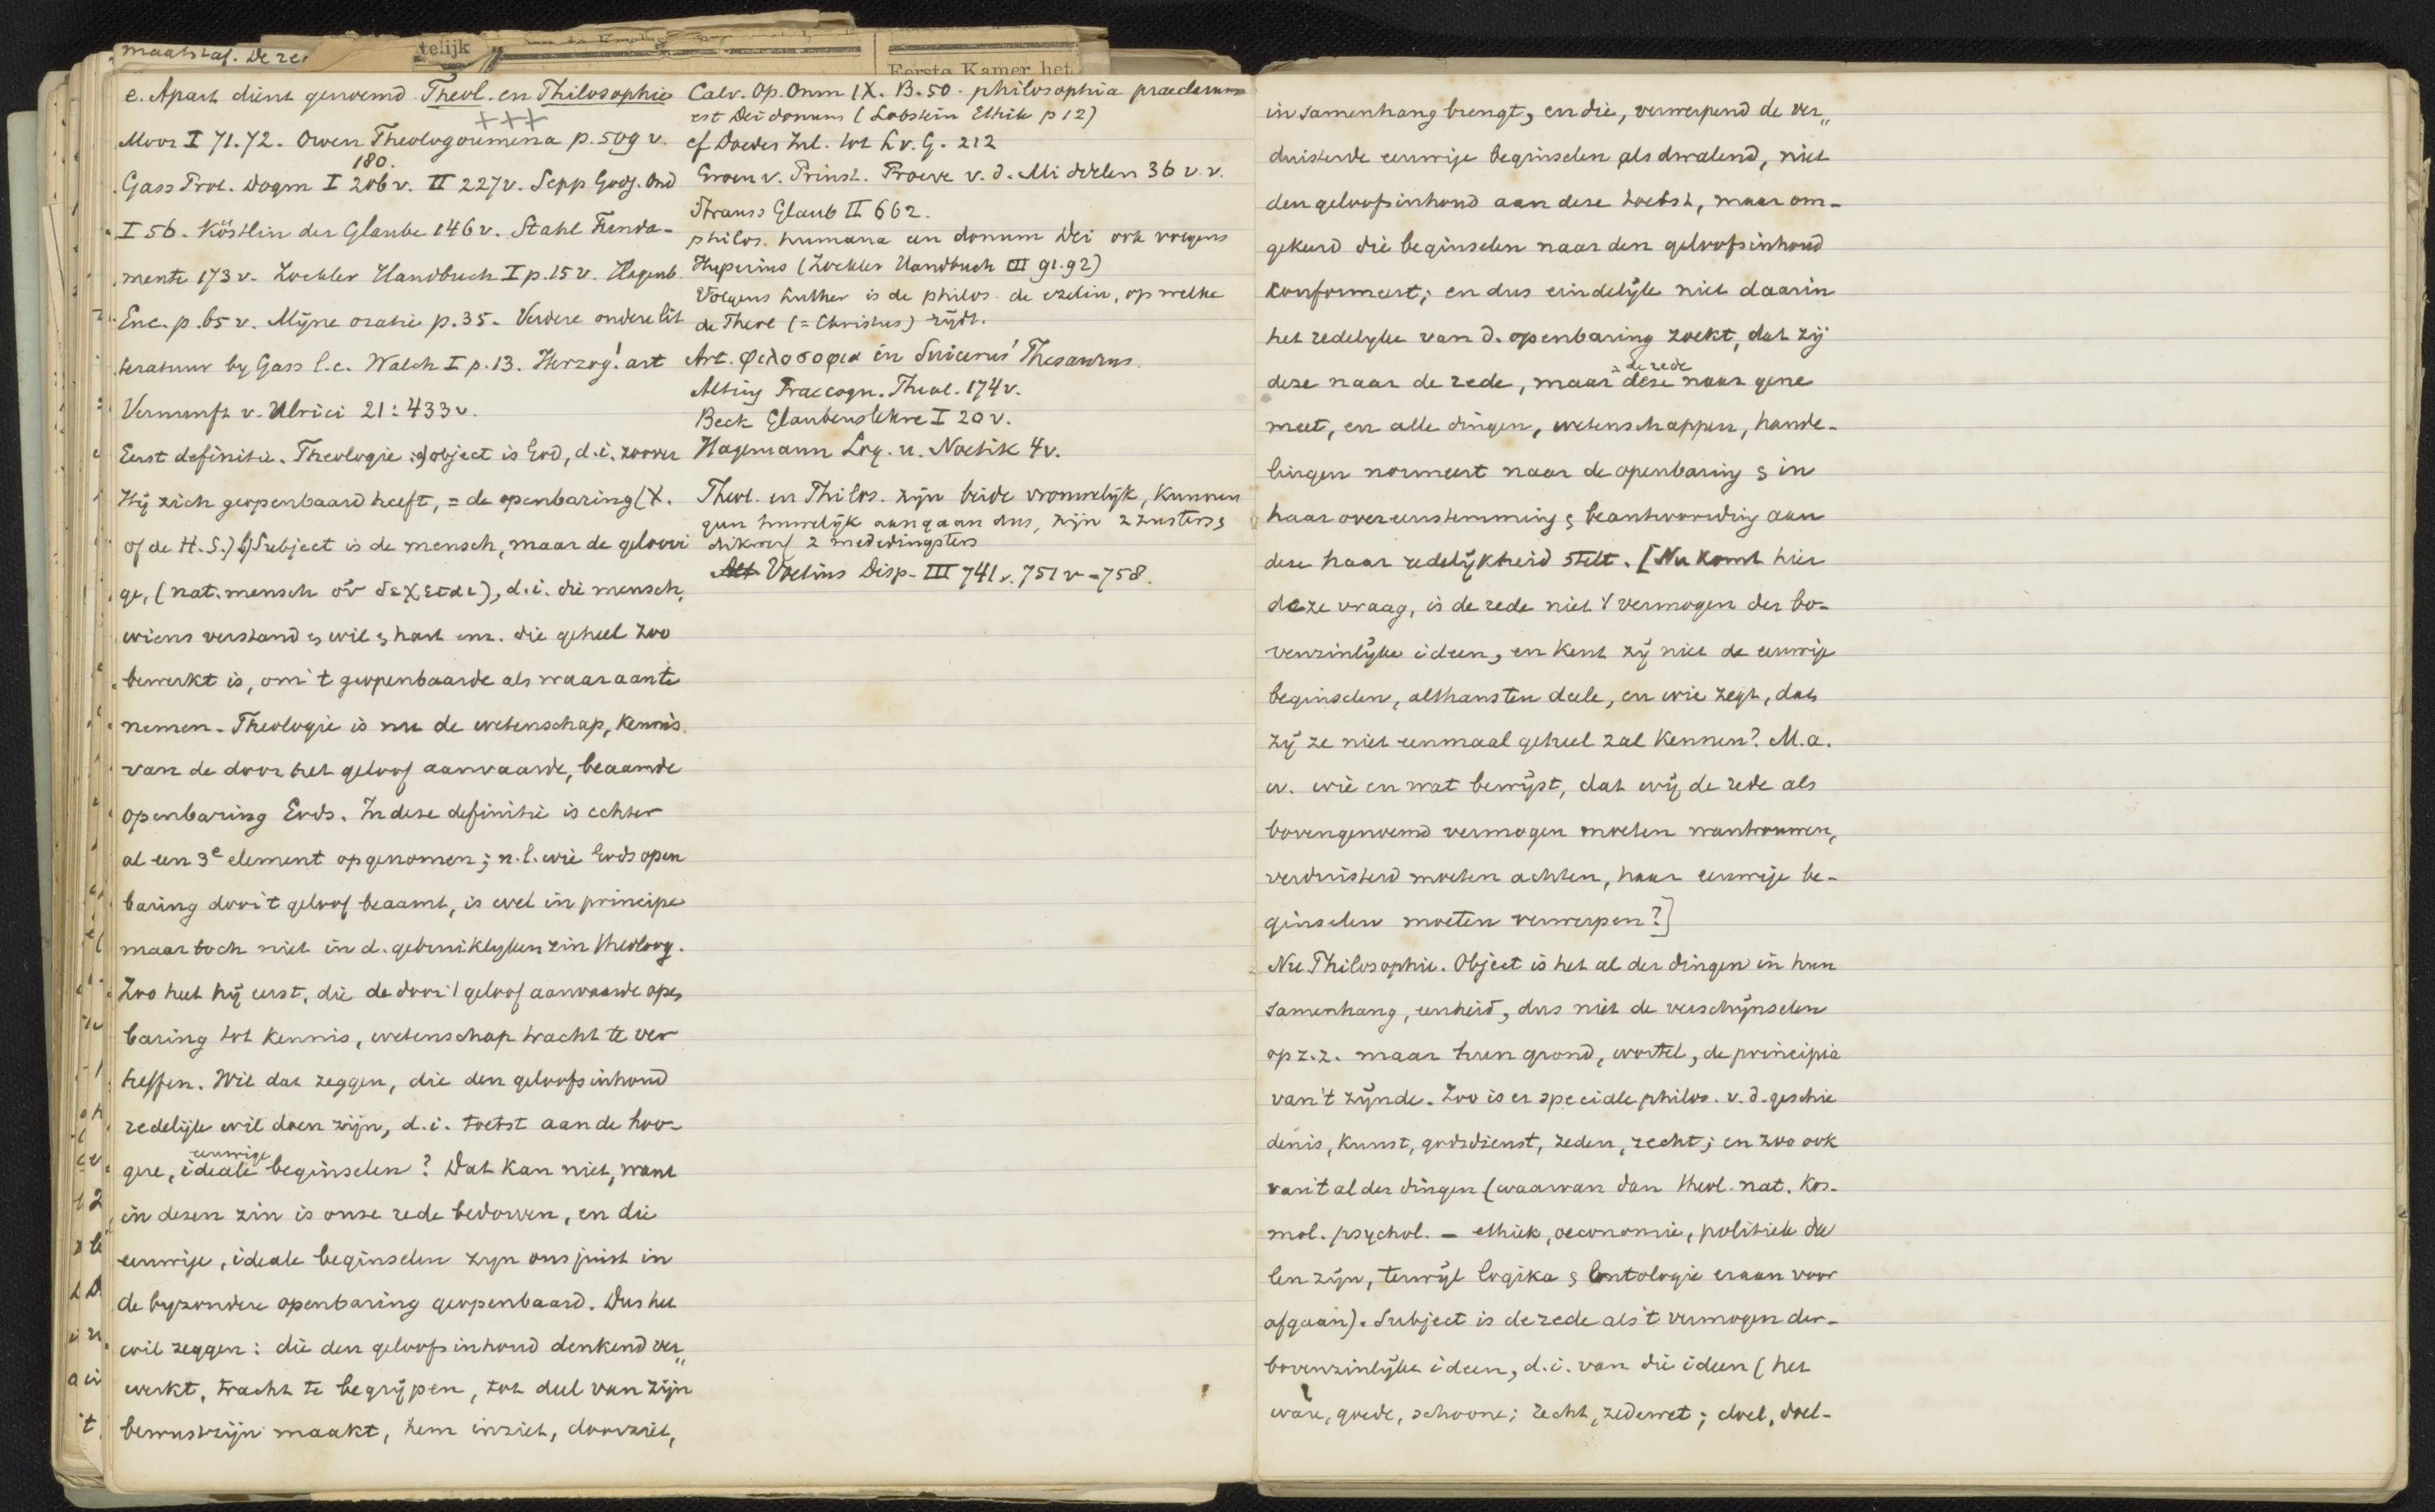 maatstaf. De re
telijk
Eerste Kamer het
e. Apart dient genoemd Theol. en Philosophie
+++
Moor I 71.72. Owen Theologoumena p. 509 v.
180.
Gass Prot. Dogm I 206 v. II 227 v. Sepp Godg. Ond
I 56. Köstlin der Glaube 146 v. Stahl Funda-
mente 173 v. Zockler Handbuch I p. 15 v. Hagenb.
Enc. p. 65 v. Mijne oratie p. 35. Verdere oudere lit
teratuur by Gass l.c. Walch I p. 13. Herzog! art
Vernunft v. Ulrici 21: 433 v.
Eerst definitie. Theologie: a) object is God, d.i. zoover
Hij zich geopenbaard heeft, = de openbaring (X.
of de H. S.) b) Subject is de mensch, maar de geloovi
ge, (nat. mensch οὐ δεχεται), d.i. die mensch,
wiens verstand en wil en hart enz. die geheel zoo
bewerkt is, om 't geopenbaarde als waar aan te
nemen. Theologie is nu de wetenschap, kennis
van de door het geloof aanvaarde, beaamde
openbaring Gods. In deze definitie is echter
al een 3e element opgenomen; n.l. wie Gods open
baring door 't geloof beaamt, is wel in principe
maar toch niet in d. gebruiklyken zin theoloog.
Zoo heet hij eerst, die de door 't geloof aanvaarde open
baring tot kennis, wetenschap tracht te ver
heffen. Wil dat zeggen, die den geloofsinhoud
redelijk wil doen zijn, d.i. toetst aan de hoo-
eeuwige
gere, ideale beginselen? Dat kan niet, want
in dezen zin is onze rede bedorven, en die
eeuwige, ideale beginselen zyn ons juist in
de byzondere openbaring geopenbaard. Dus het
wil zeggen: die den geloofsinhoud denkend ver„
werkt, tracht te begrijpen, tot deel van zijn
bewustzijn maakt, hem inziet, doorziet,
Calv. Op. Omn IX. B. 50. philosophia praeclarum
est Dei donum (Lobstein Ethik p 12)
cf Doedes Inl. tot L v. G. 212
Groen v. Prinst. Proeve v. d. Middelen 36 v.v.
Strauss Glaub II 662.
philos. humana een donum Dei ook volgens
Hyperius (Zockler Handbuch III 91.92)
Volgens Luther is de philos. de ezelin, op welke
de Theol (= Christus) rijdt.
Art. φιλοσοφια in Suicerus' Thesaurus.
Alting Praecogn. Theol. 174 v.
Beck Glaubenslehre I 20 v.
Hagemann Log. u. Noetik 4 v.
Theol. en Philos. zijn beide vrouwelijk, kunnen
geen huwelijk aangaan dus, zijn 2 zusters en
dikwerf 2 mededingsters
Voetius Disp. III 741 v. 751 v - 758.
in samenhang brengt, en die, verwerpend de ver„
duisterde eeuwige beginselen als dwalend, niet
den geloofsinhoud aan deze toetst, maar om-
gekeerd die beginselen naar den geloofsinhoud
konformeert; en dus eindelijk niet daarin
het redelyke van d. openbaring zoekt, dat zij
de rede
deze naar de rede, maar deze naar gene
meet, en alle dingen, wetenschappen, hande-
lingen normeert naar de openbaring en in
haar overeenstemming en beantwoording aan
deze haar redelijkheid stelt. [Nu komt hier
deze vraag, is de rede niet 't vermogen der bo-
venzinlijke ideen, en kent zij niet de eeuwige
beginselen, althans ten deele, en wie zegt, dat
zij ze niet eenmaal geheel zal kennen? M.a.
w. wie en wat bewijst, dat wij de rede als
bovengenoemd vermogen moeten wantrouwen,
verduisterd moeten achten, haar eeuwige be-
ginselen moeten verwerpen?]
Nu Philosophie. Object is het al der dingen in hun
samenhang, eenheid, dus niet de verschijnselen
op z.z. maar hun grond, wortel, de principia
van 't zijnde. Zoo is er speciale philos. v. d. geschie
denis, kunst, godsdienst, zeden, recht; en zoo ook
van 't al der dingen (waarvan dan theol. nat. kos-
mol. psychol. - ethiek, oeconomie, politiek dee
len zijn, terwijl logika en ontologie eraan voor
afgaan). Subject is de rede als 't vermogen der-
bovenzinlijke ideen, d.i. van die ideen (het
ware, goede, schoone; recht, zedewet; doel, doel-